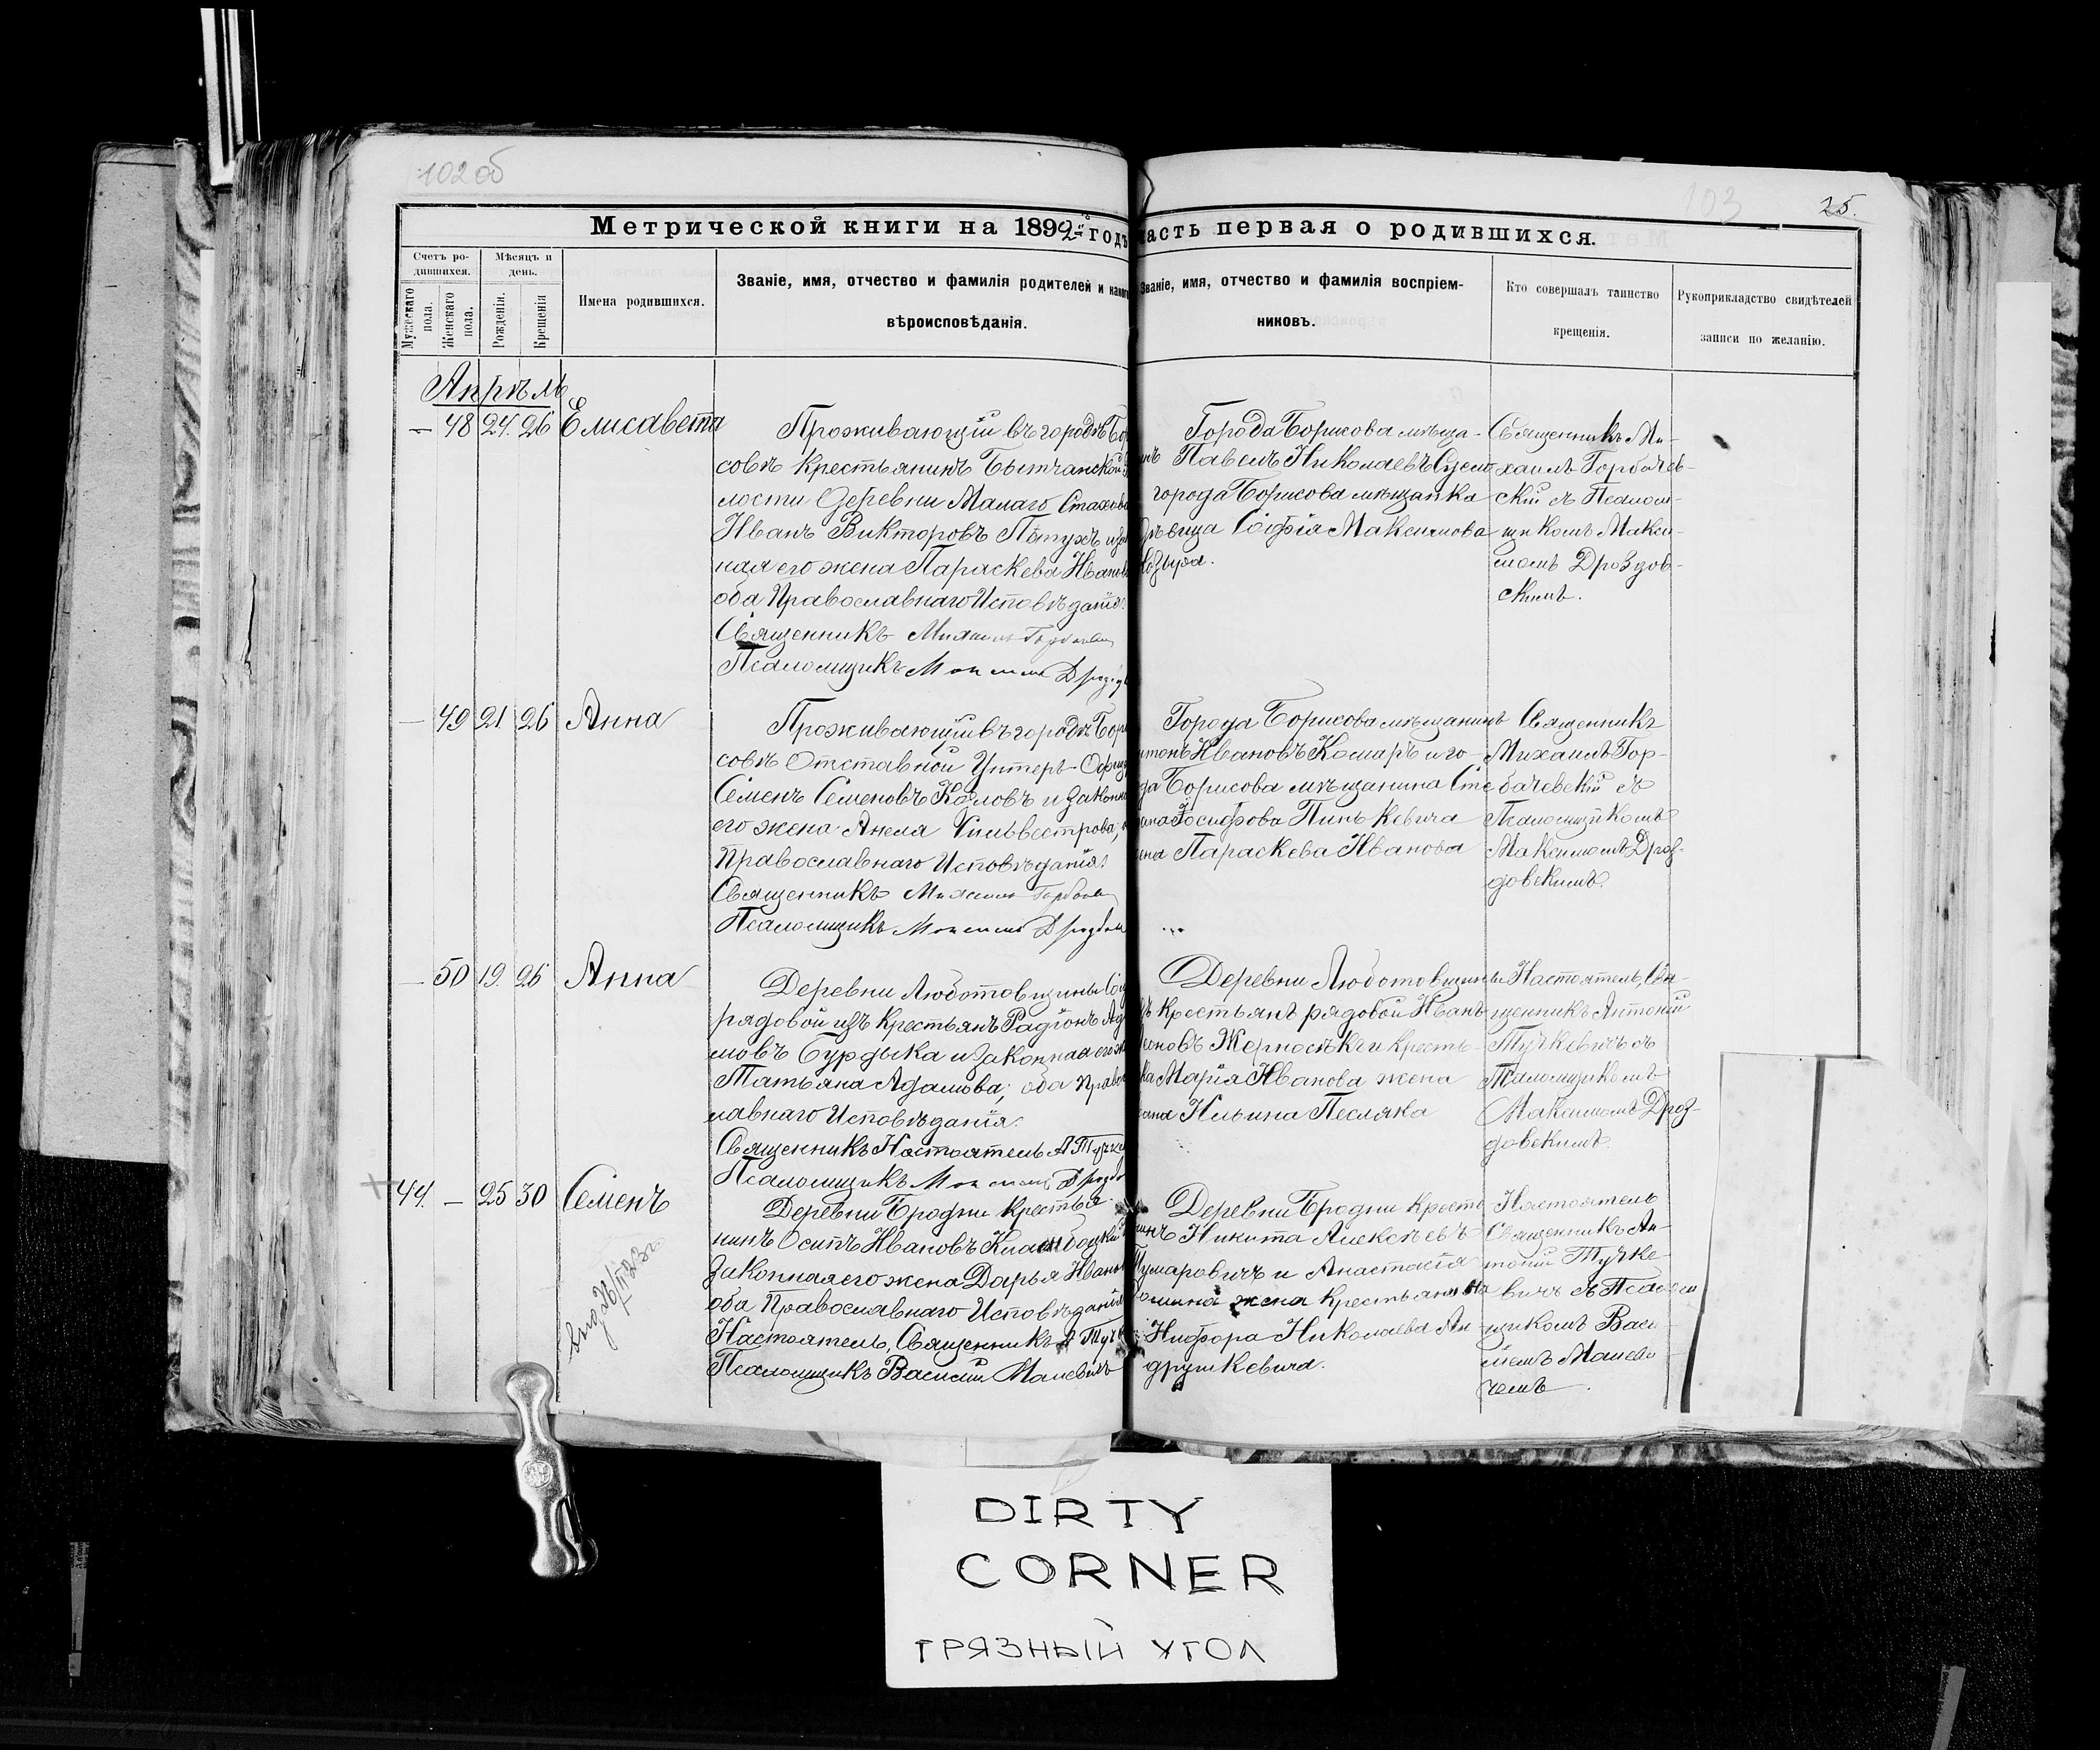 102 об
103
25.
Метрической книги на 1892й годъ
часть первая о родившихся.
Счетъ родившихся.
Мужескаго пола.
Женскаго пола.
Мѣсяцъ и день.
Рожденія.
Крещенія
Имена родившихся.
Званіе, имя, отчество и фамилія родителей и какого
вѣроисповѣданія.
Званіе, имя, отчество и фамилія воспріем-
никовъ.
Кто совершалъ таинство
крещенія.
Рукоприкладство свидѣтелей
записи по желанію.
Апрѣль
— 48 24. 26 Елисавета
Проживающій въ городѣ Бо
совѣ крестьянинъ Бытчанской
лости деревни Малаго Стахова
Иванъ Викторовъ Петухъ и зак
ная его жена Параскева Иванов
оба Православнаго Исповѣданія.
Священникъ Михаилъ Горбачев
Псаломщикъ Максимъ Дрозд
Города Борисова мѣща-
нъ Павелъ Николаевъ
города Борисова мѣщанка
дѣвица Софія Максимова
Козыра.
Священникъ Ми-
хаилъ Горбачев-
скій съ Псалом-
щикомъ Макси-
момъ Дроздов-
скимъ.
— 49 21 26 Анна
Проживающій въ городѣ Бори
совѣ Отставной Унтеръ-Офице
Семенъ Семеновъ Козловъ и законна
его жена Анела Сильвестрова;
Православнаго Исповѣданія.
Священникъ Михаилъ Горбачев
Псаломщикъ Максимъ Дроздов
Города Борисова мѣщанинъ
нтонъ Ивановъ Комаръ и го-
да Борисова мѣщанина Сте
ана Іосифова Пинькевича
ена Параскева Иванова
Священникъ
Михаилъ Гор-
бачевскій съ
Псаломщикомъ
Максимомъ Дроз-
довскимъ.
— 50 19. 26 Анна
Деревни Люботовщины
рядовой изъ крестьянъ Радіонъ Ад
мовъ Бурдыка и законная его ж
Татьяна Адамова; оба Правос
лавнаго Исповѣданія.
Священникъ Настоятель А Тучке
Псаломщикъ Максимъ Дроздо
Деревни Люботовщины
ъ крестьянъ рядовой Иванъ
Жерносѣкъ и кресть-
ка Марія Иванова жена
ана Ильина Песляка
Настоятель, Свя-
щенникъ Антоній
Тучкевичъ съ
Псаломщикомъ
Максимомъ Дроз-
довскимъ.
44. — 25 30 Семенъ
выд 26/II 23 г.
Деревни Бродни крестья-
нинъ Осипъ Ивановъ
законная его жена Дарья Иванов
оба Православнаго Исповѣданія
Настоятель, Священникъ А Тучк
Псаломщикъ Василій Малевичъ
Деревни Бродни кресть
нинъ Никита Алексѣевъ
и Анастасія
жена крестьянина
Нифора Николаева Ан-
друшкевича.
Настоятель
Священникъ Ан-
тоній Тучке-
вичъ съ Псалом
щикомъ Васи-
ліемъ Малеви-
чемъ.
DIRTY
CORNER
ГРЯЗНЫЙ УГОЛ